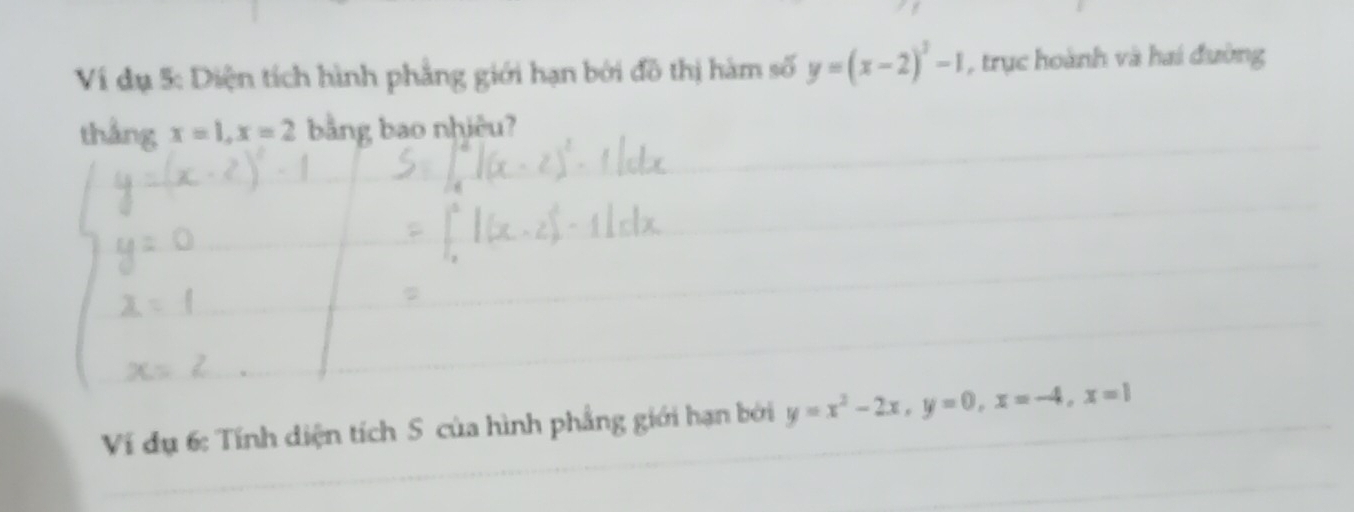 Ví dụ 5: Diện tích hình phẳng giới hạn bởi đồ thị hàm số y=(x-2)²-1, trục hoành và hai đường
thẳng x=1, x=2 bằng bao nhiêu?
y=(x-2)²-1 S=∫₁²|(x-2)²-1|dx
y=0 =∫₁²|(x-2)²-1|dx
x=1 =
x=2.
Ví dụ 6: Tính diện tích S của hình phẳng giới hạn bởi y=x²-2x, y=0, x=-4, x=1